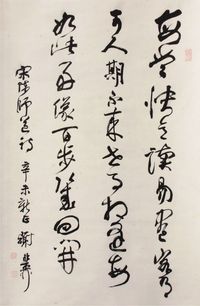 書當快意讀易盡客有
可人期不来世事相違每
如此好懷百歲幾回開
宋陳師道詩 辛未新正 謝